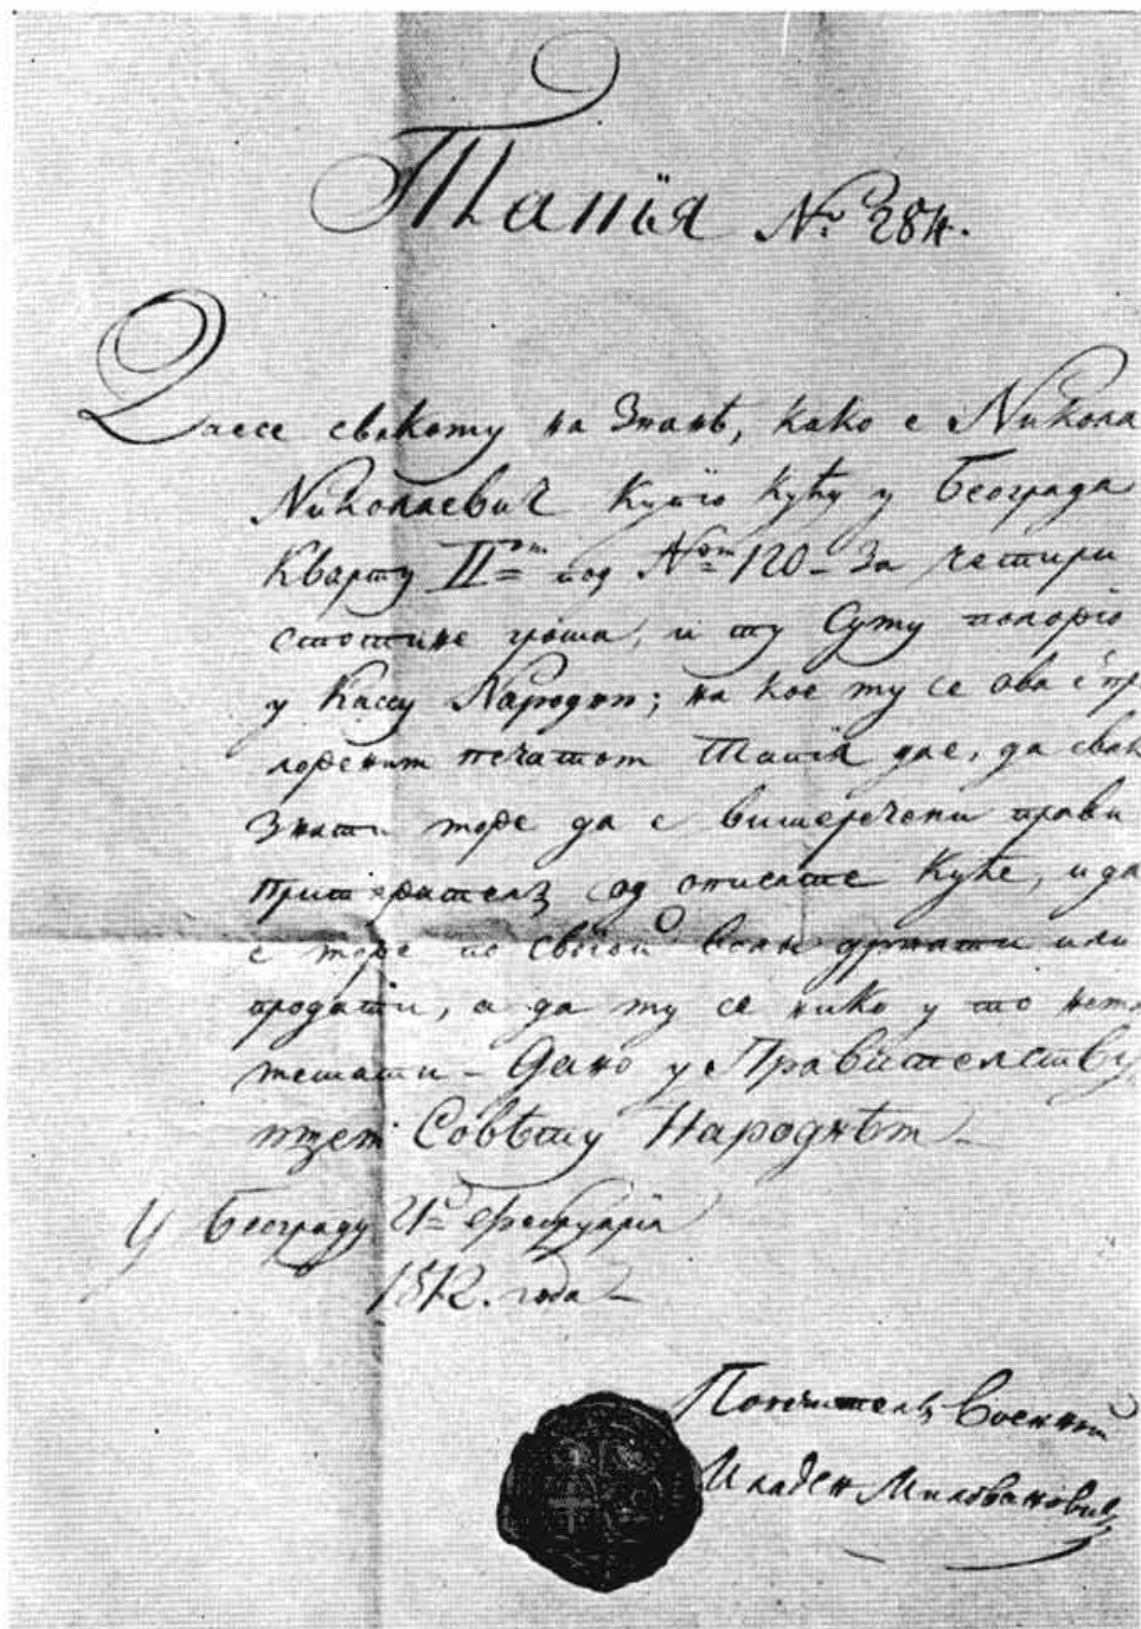 Тапія №. 284.
Даесе свакому на Знанѣ, како є Никола
Николаевич Купіо Кућу у Београда
Кварту II под № 120 - За четири
стотине гроша, и ту Суму положіо
у Кассу Народню; на кое му се ова с' пр
ложеним печатом Тапія дае, да свак
Знати може да є вишеречени прави
Притяжатель од описате Куће, и да
є може по своіой волы држати или
продати, а да му се нико у то нем
мешати - Дано у Правителству
ющем Совѣту Народнѣм -
У Београду 21 Фебруаріа
1812. года -
Попечитель Военный
Младен Миловановић